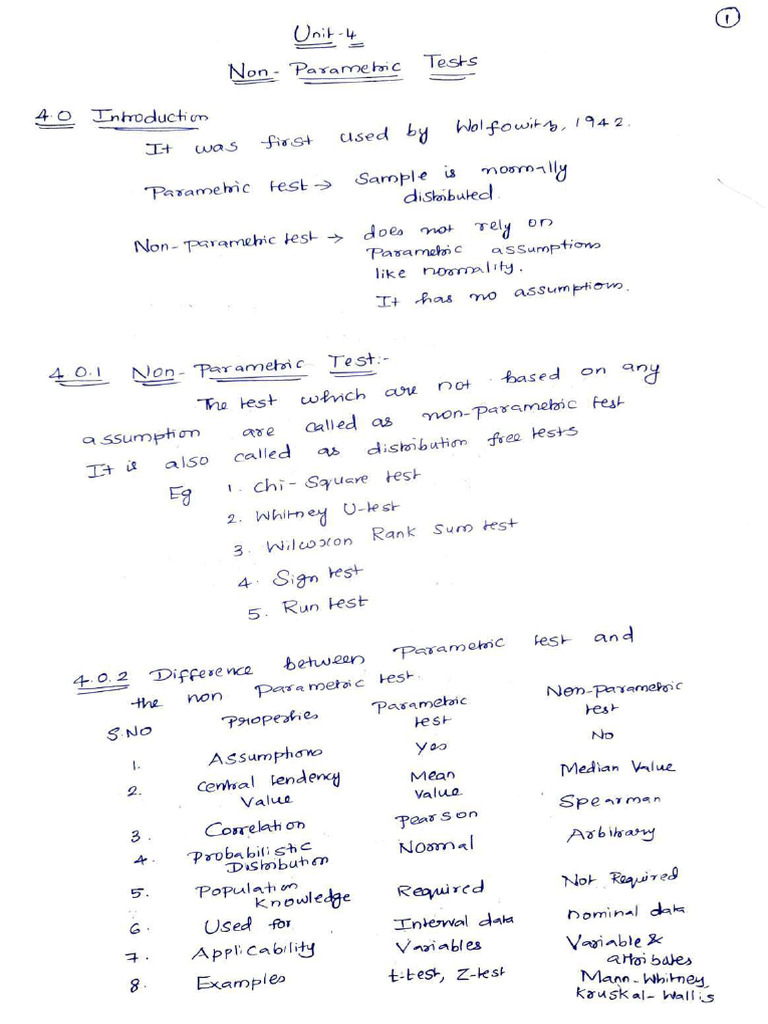 1
Unit-4
Non-Parametric Tests
4.0 Introduction
It was first used by Wolfowitz, 1942.
Parametric test → Sample is normally
distributed.
Non-parametric test → does not rely on
Parametric assumptions
like normality.
It has no assumption.
4.0.1 Non-Parametric Test:-
The test which are not based on any
assumption are called as non-parametric test
It is also called as distribution free tests
Eg 1. Chi-Square test
2. Whitney U-test
3. Wilcoxon Rank Sum test
4. Sign test
5. Run test
4.0.2 Difference between Parametric test and
the non Parametric test.
S.NO Properties Parametric test Non-Parametric test
1. Assumptions Yes No
2. Central tendency Value Mean Value Median Value
3. Correlation Pearson Spearman
4. Probabilistic Distribution Normal Arbitrary
5. Population Knowledge Required Not Required
6. Used for Interval data nominal data
7. Applicability Variables Variable & attributes
8. Examples t-test, Z-test Mann-Whitney, Kruskal-Wallis